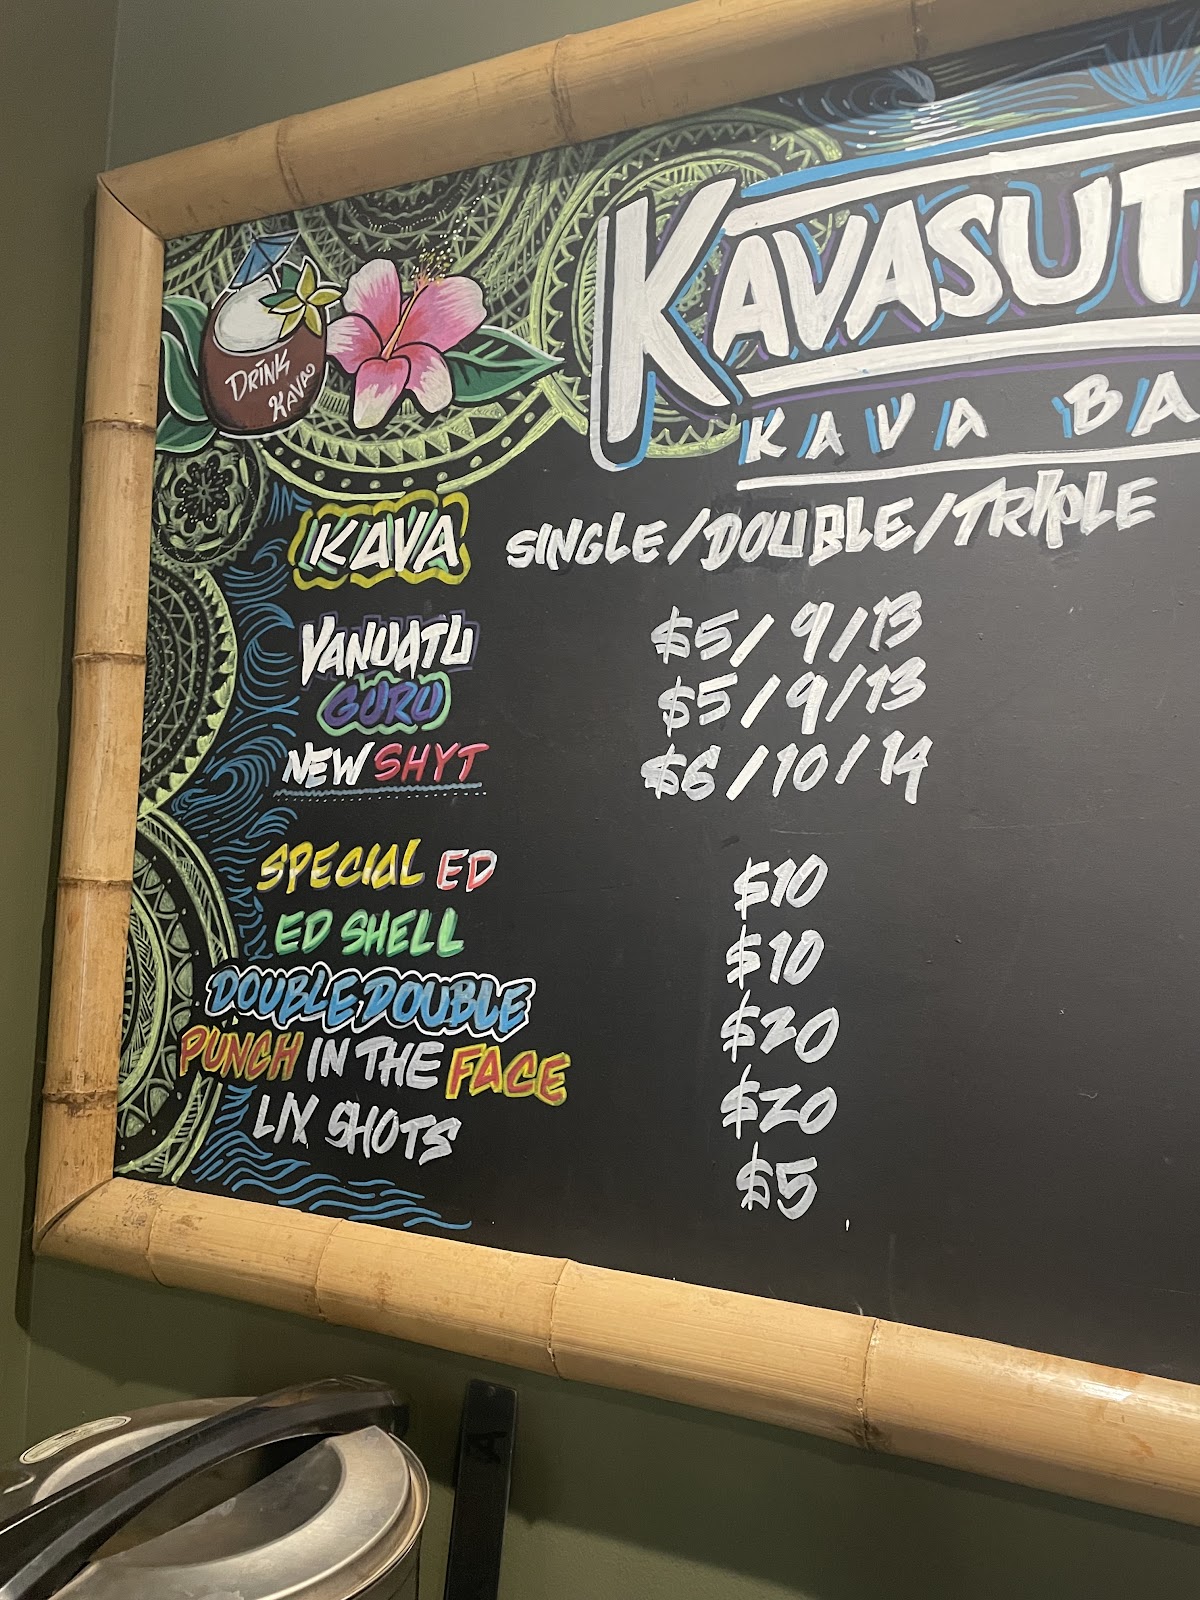 DRINK
KAVA
KAVASUT
KAVA BA
KAVA SINGLE/DOUBLE/TRIPLE
VANUATU $5/9/13
GURU $5/9/13
NEW SHYT $6/10/14
SPECIAL ED $10
ED SHELL $10
DOUBLE DOUBLE $20
PUNCH IN THE FACE $20
LIX SHOTS $5